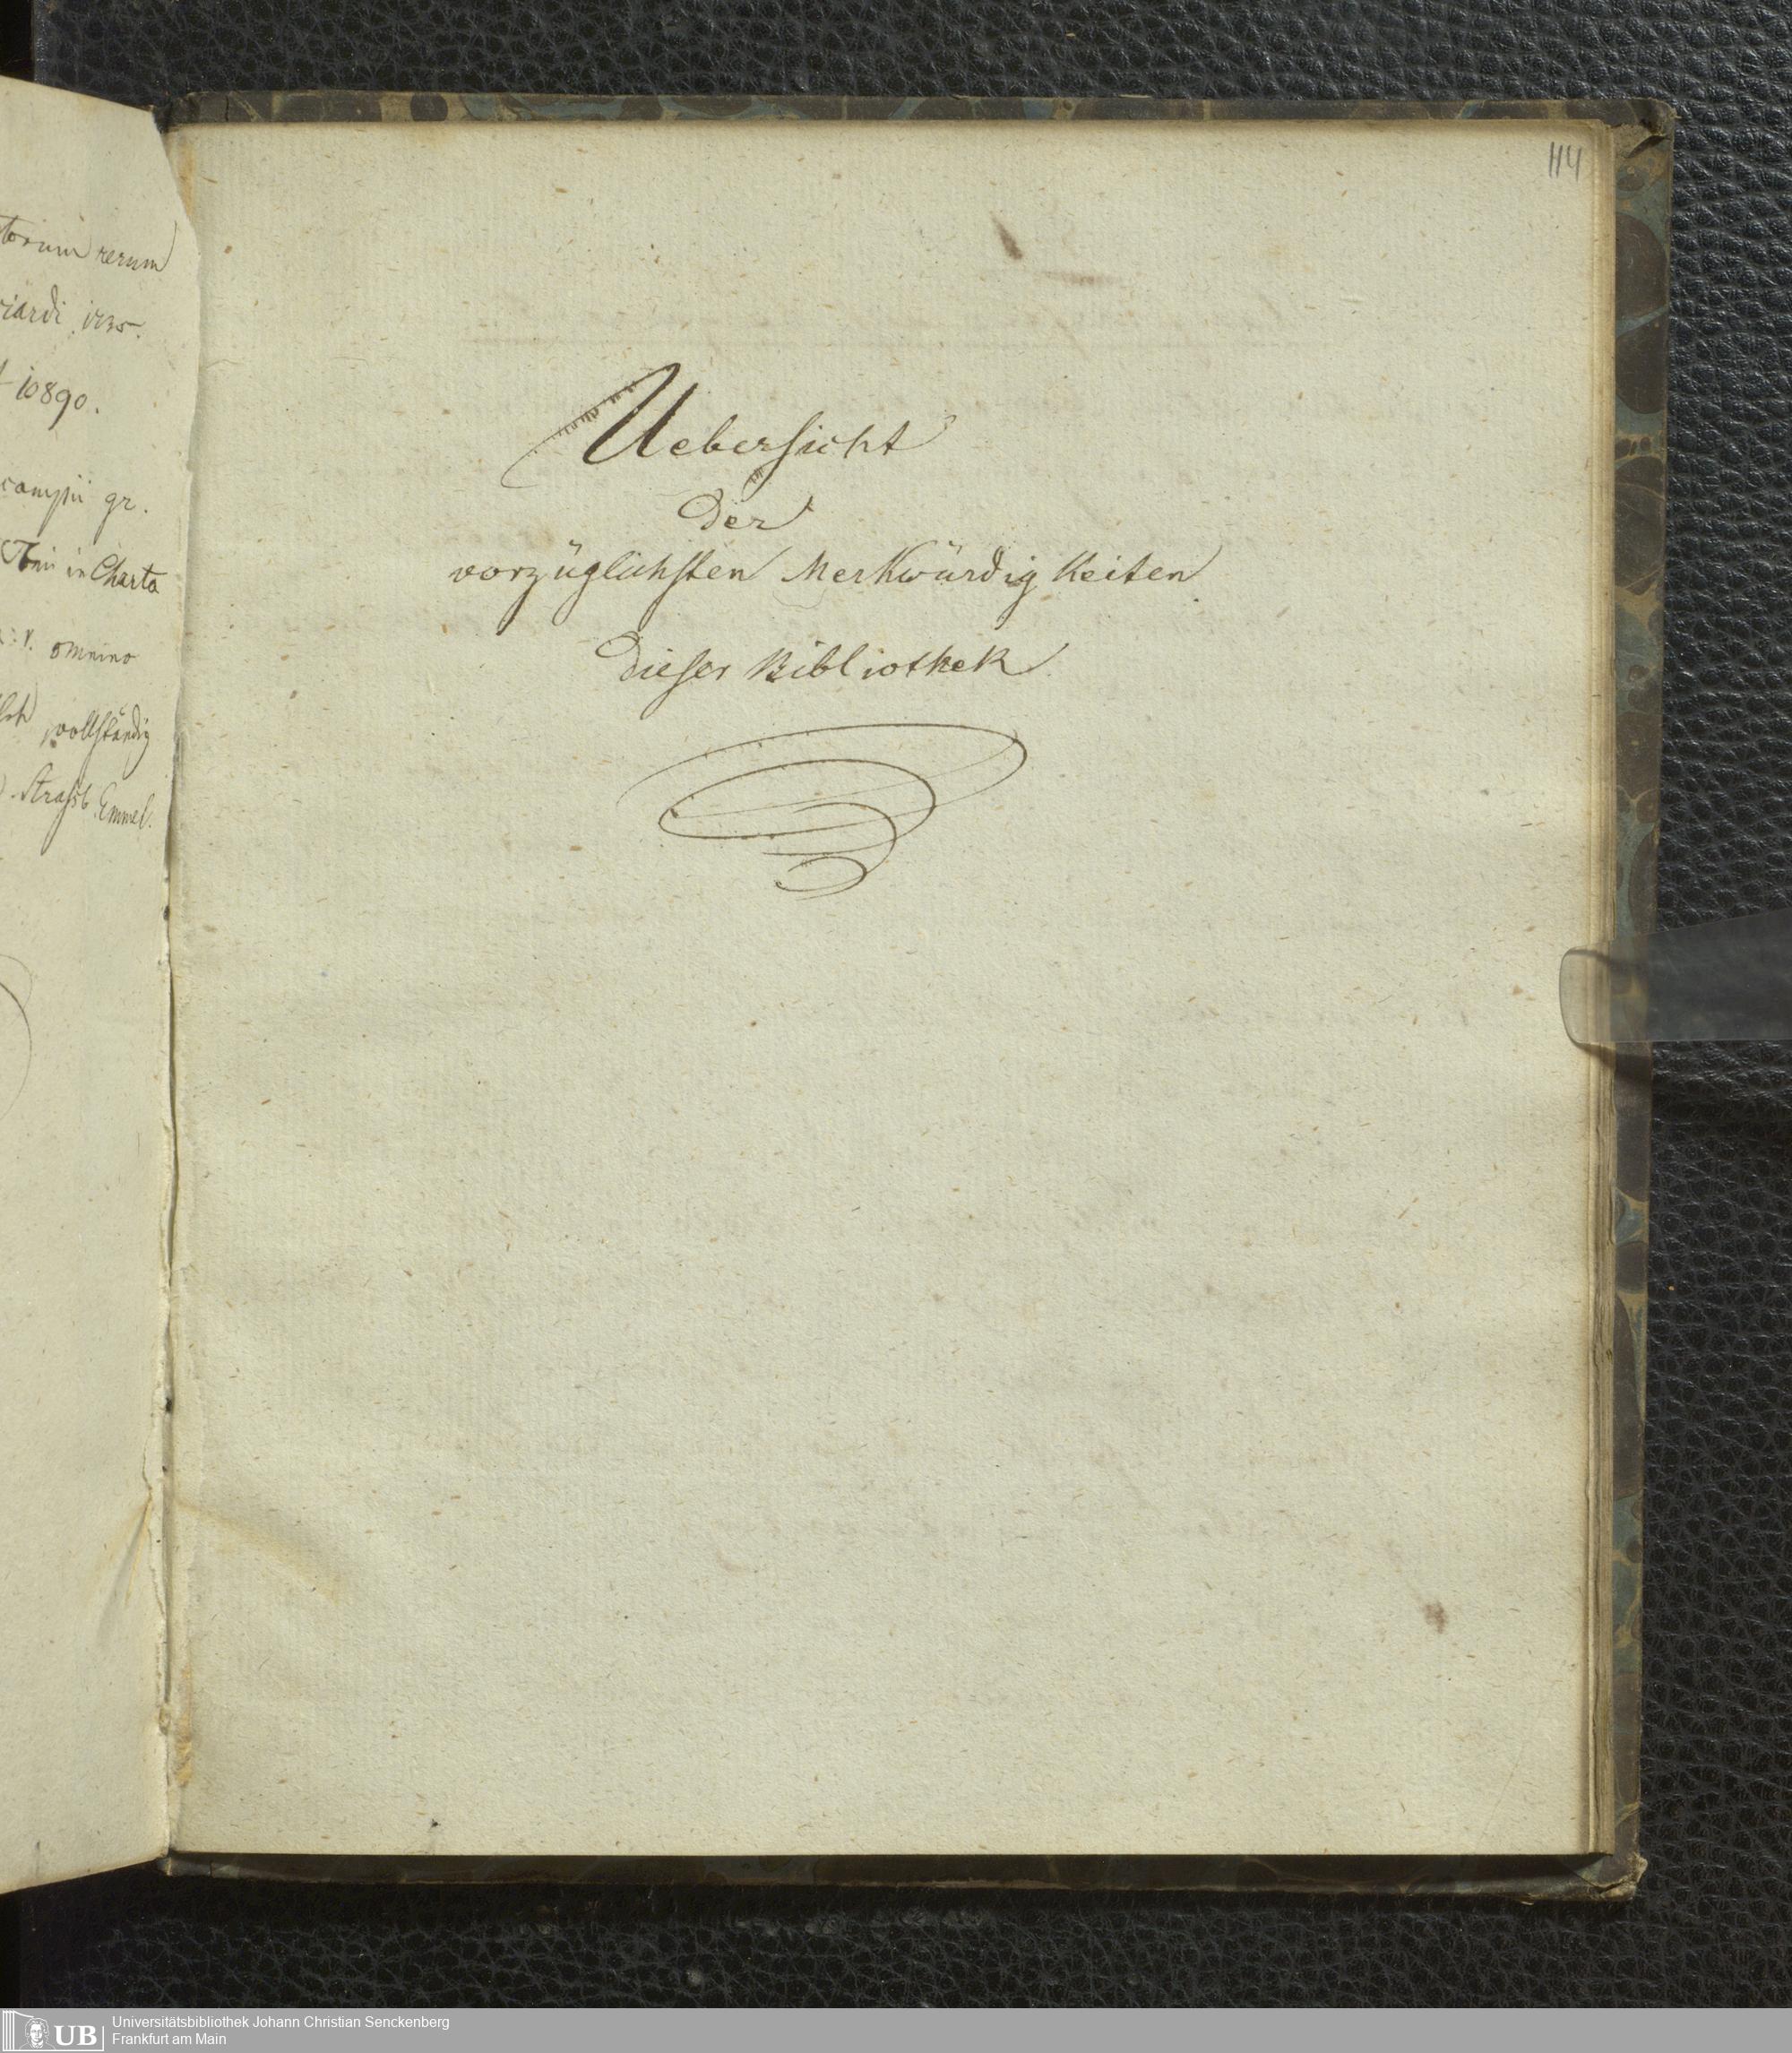 torum rerum
ciardi 1735.
10890.
campii gr.
in Charta
omnino
vollständig
Strassb. Emmel.
114
Uebersicht
Der
vorzüglichsten Merkwürdigkeiten
Dieser Bibliothek
UB
Universitätsbibliothek Johann Christian Senckenberg
Frankfurt am Main